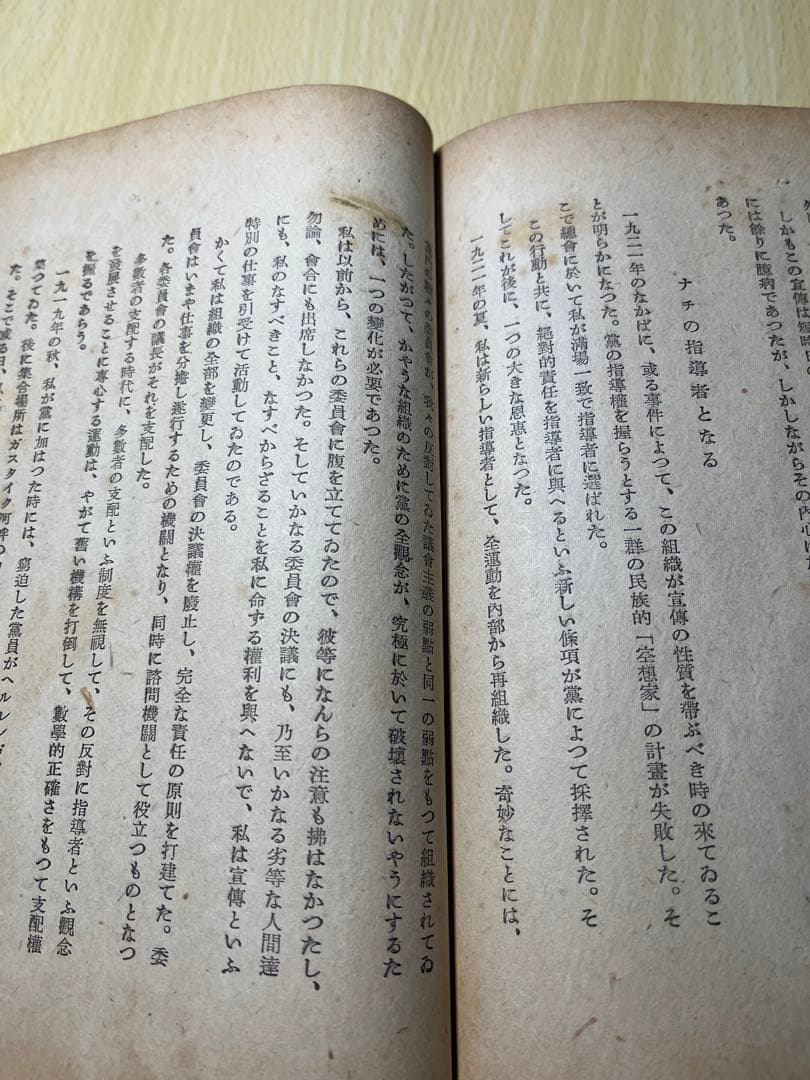 しかもこの宣傳は短時日の
には餘りに臆病であつたが、しかしながらその內心は
あつた。
ナチの指導者となる
一九二一年のなかばに、或る事件によつて、この組織が宣傳の性質を帶ぶべき時の來てゐるこ
とが明らかになつた。黨の指導權を握らうとする一群の民族的「空想家」の計畫が失敗した。そ
こで總會に於いて私が滿場一致で指導者に選ばれた。
この行動と共に、絕對的責任を指導者に與へるといふ新しい條項が黨によつて採擇された。そ
してこれが後に、一つの大きな恩惠となつた。
一九二一年の夏、私は新らしい指導者として、全運動を內部から再組織した。奇妙なことには、
委員會が、我々の反對してゐた議會主義の弱點と同一の弱點をもつて組織されてゐ
た。したがつて、かやうな組織のために黨の全觀念が、究極に於いて破壞されないやうにするた
めには、一つの變化が必要であつた。
私は以前から、これらの委員會に腹を立ててゐたので、彼等になんらの注意も拂はなかつたし、
勿論、會合にも出席しなかつた。そしていかなる委員會の決議にも、乃至いかなる劣等な人間達
にも、私のなすべきこと、なすべからざることを私に命ずる權利を與へないで、私は宣傳といふ
特別の仕事を引受けて活動してゐたのである。
かくて私は組織の全部を變更し、委員會の決議權を廢止し、完全な責任の原則を打建てた。委
員會はいまや仕事を分擔し遂行するための機關となり、同時に諮問機關として役立つものとなつ
た。各委員會の議長がそれを支配した。
多數者の支配する時代に、多數者の支配といふ制度を無視して、その反對に指導者といふ觀念
を發展させることに專心する運動は、やがて舊い機構を打倒して、數學的正確さをもつて支配權
を握るであらう。
一九一九年の秋、私が黨に加はつた時には、窮迫した黨員がヘルレンガ
集つてゐた。後に集合場所はガスタイク河畔の
た。そこで或る日、